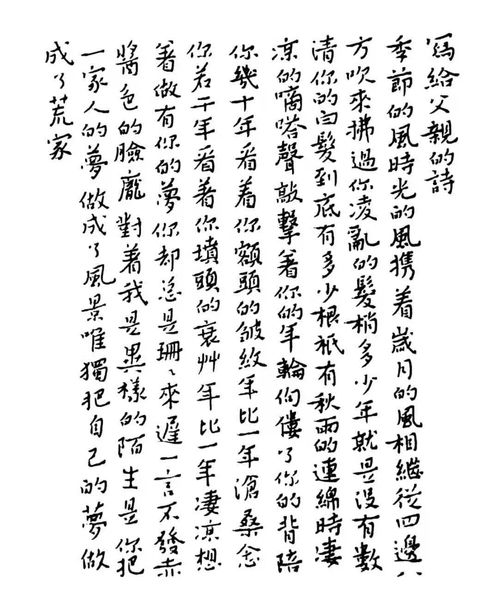 寫給父親的詩
季節的風時光的風携着歲月的風相繼從四邊八
方吹來拂過你凌亂的髮梢多少年就是沒有數
清你的白髮到底有多少根祇有秋雨的連綿時凄
凉的嘀嗒聲敲擊着你的年輪佝僂了你的背陪
你幾十年看着你額頭的皱紋年比一年滄桑念
你若干年看着你墳頭的衰艸年比一年凄凉想
着做有你的夢你却总是珊々來遲一言不發赤
醬色的臉龐對着我是異樣的陌生是你把
一家人的夢做成了風景唯獨把自己的夢做
成了荒冢